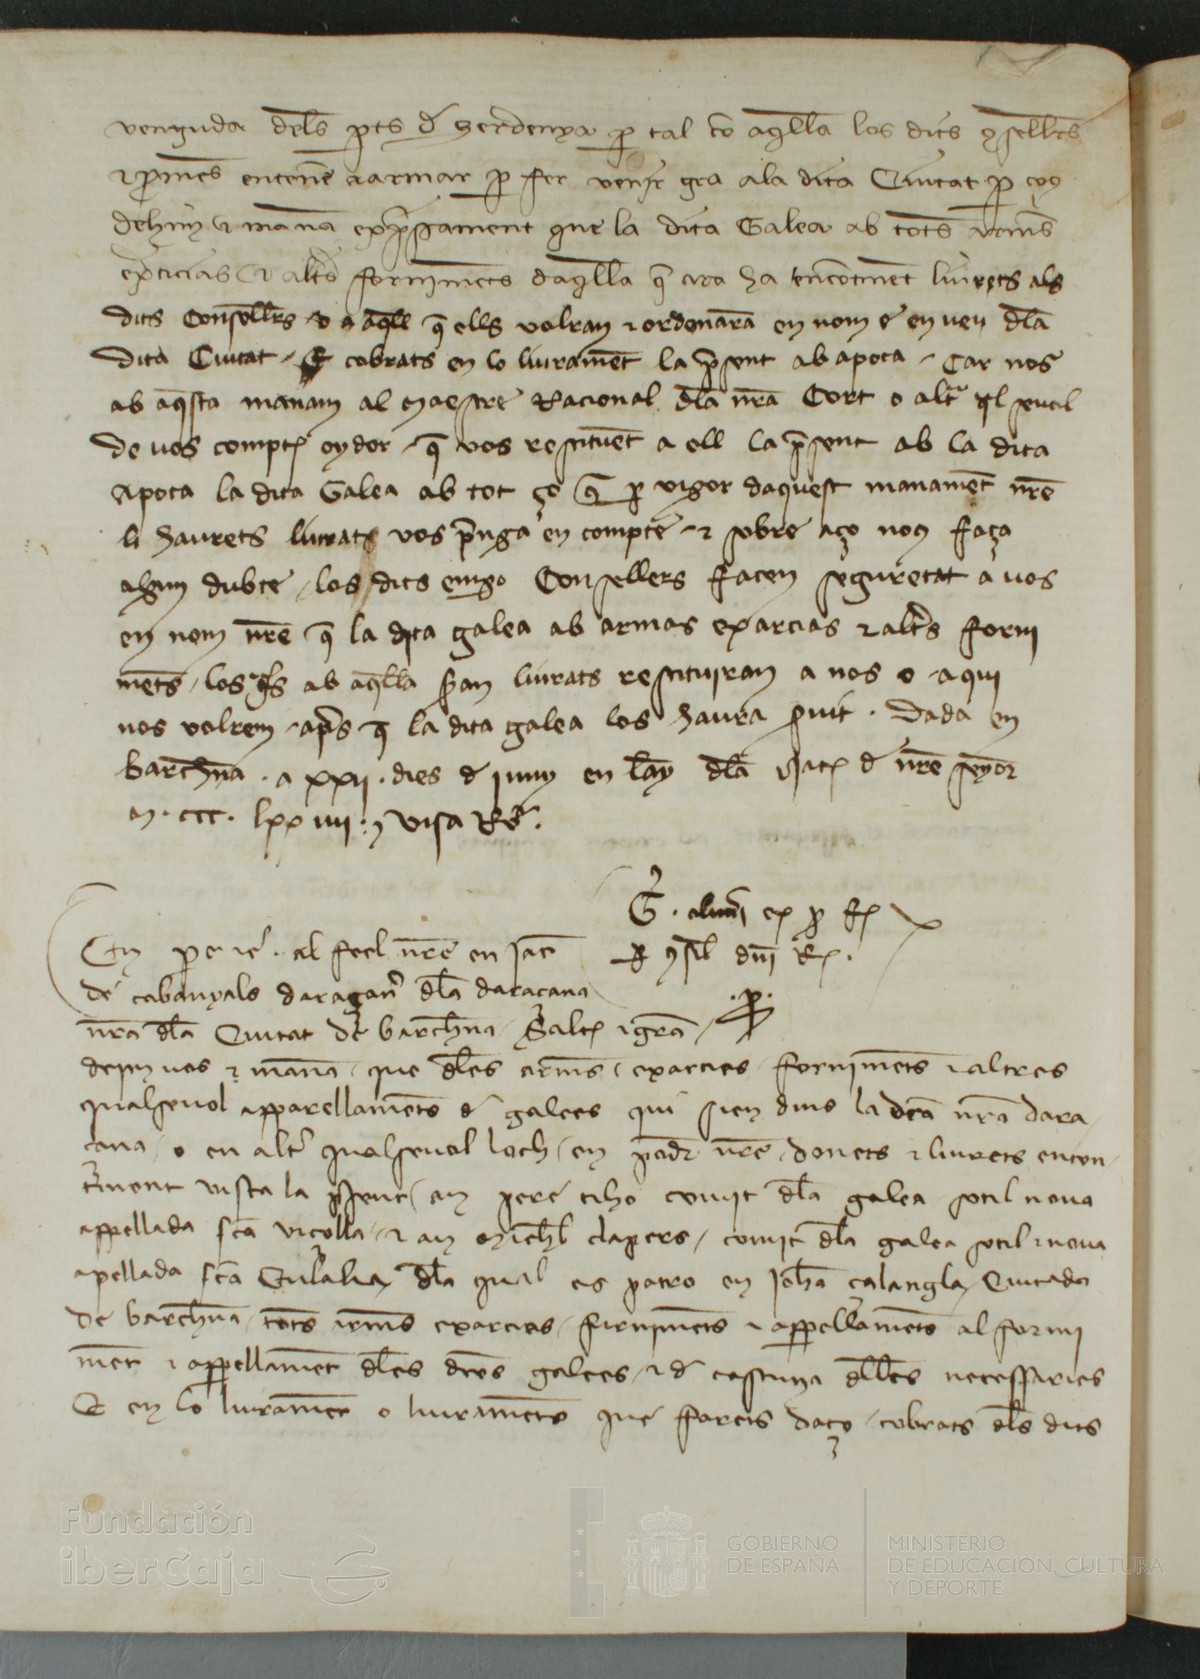 venguda dels pts de Serdenya p tal co aqlla los dits 9sellers
e promes entene a armar p fer venir gra a la dita Ciutat p ço9
dehim e mana expssament que la dita Galea ab tots arms
exarcias e altrs forniments daqlla q ara ha encotinent liurets als
dits Consellrs o a aqll q ells volran e ordenara en nom e en veu dla
dita Ciutat E cobrats en lo liurament la psent ab apoca Car nos
ab aqsta manam al Maestre Racional dla nra Cort o altr qlsevol
de vos compte oydor q vos restituent a ell la psent ab la dita
apoca la dita Galea ab tot ço q p vigor daquest manament nre
li haurets liurats vos prenga en compte e sobre aço nos faça
algun dubte los dits empo Consellers facen seguretat a vos
en nom nre q la dita galea ab armas exarcias e altrs forni
ments los qls ab aqlla seran liurats restituiran a nos o aqui
nos volrem aprs q la dita galea los haura servit . Dada en
barchna . a xxii . dies de juny en lay dla Nat de nre senyor
M . ccc . lxx iiii . visa Re .
En pere . al feel nre en Jac
de cabanyals daraçaner dla daraçana
nra dla Ciutat de barchna Salt e gra
dehim vos e mana que dles arms exarcies forniments e altres
qualsevol apparellaments de galees qui sien dins la dca nra dara
çana o en altr qualsevol loch en poder nre donets e liurets encon
tinent vista la psent an pere tiho comit dla galea sotil nova
appellada sca vicolla e an Michl clapers comit dla galea sotil e nova
apellada sca Eulalia dla qual es patro en Joha çalangla Ciutada
de barchna tots arms exarcies forniments e appellaments al forni
ment e appellament dles dces galees e de cascuna dlles necessaries
E en lo liurament o liuraments que farets daço cobrats dls dits
G . alumi ex p R
p 9sil dni R .
.p.
Fundación
iberCaja
GOBIERNO
DE ESPAÑA
MINISTERIO
DE EDUCACIÓN, CULTURA
Y DEPORTE